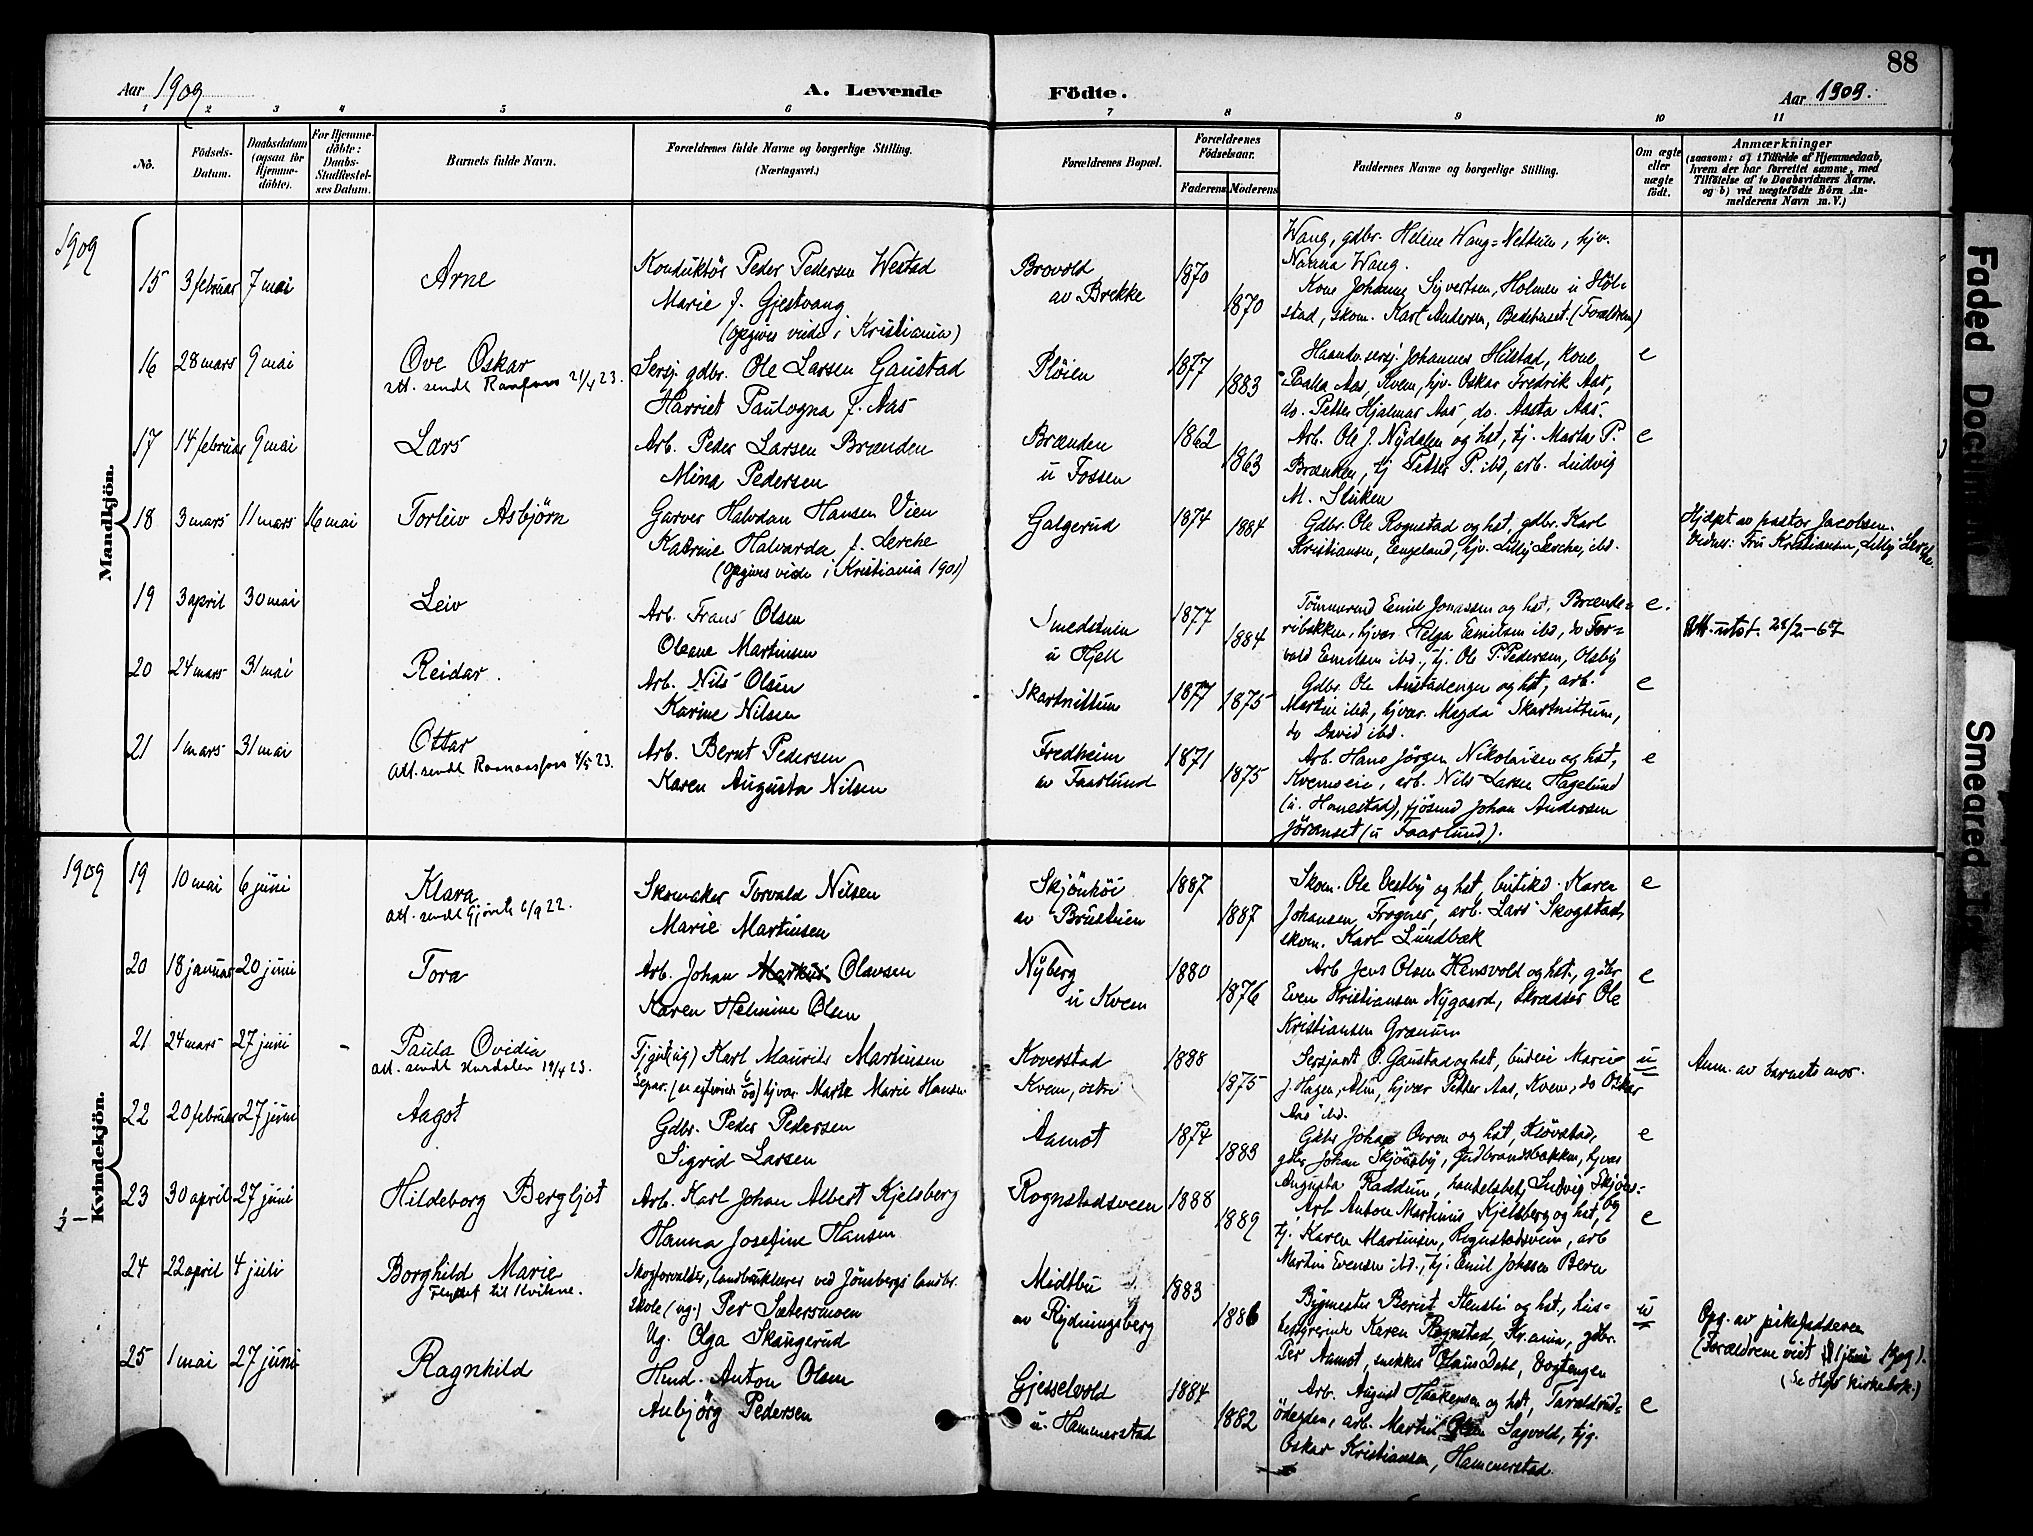 88
Aar 1909
A. Levende
Födte.
Aar 1909.
1 2 3 4 5 6 7 8 9 10 11
No.
Födsels-Datum.
Daabsdatum (ogsaa for Hjemmedöbte).
For Hjemmedöbte: Daabs-Stadfæstelses Datum.
Barnets fulde Navn.
Forældrenes fulde Navne og borgerlige Stilling.
(Næringsvei.)
Forældrenes Bopæl.
Forældrenes Födselsaar.
Faderens
Moderens
Faddernes Navne og borgerlige Stilling.
Om ægte eller uægte födt.
Anmærkninger
(saasom: a) i Tilfælde af Hjemmedaab, hvem der har forrettet samme, med Tilföielse af to Daabsvidners Navne, og b) ved uægtefödte Börn Anmelderens Navn m. V.)
1909
Mandkjön.
Wang, gdbr. Helene Wang=Nettum, hjv.
Nanna Wang.
15 3 februar 7 mai
Arne
Konduktör Peder Pedersen Westad
Marie f. Gjestvang
(opgives viede i Kristiania)
Brovold
av Brekke
1870
1870
Kone Johanne Syvertsen, Holmen u Höl-
stad, skom. Karl Andersen, Bedehuset. (Forældrene)
16 28 mars 9 mai
Ove Oskar
att. sendt Raanfoss 21/4 23.
Sersj. gdbr. Ole Larsen Gaustad
Harriet Paulogna f. Aas
Plöien
1877
1883
Haandv.sersj. Johannes Helstad, kone
Palla Aas, Kvem, hjv. Oskar Fredrik Aas,
do. Petter Hjalmar Aas, do. Aasta Aas.
e
17 14 februar 9 mai
Lars
Arb. Peder Larsen Brænden
Mina Pedersen
Brænden
u Fossen
1862
1863
Arb. Ole J. Nydalen og hst, tj. Marta P.
Brænden, tj Petter P. ibd, arb. Ludvig
M. Sliken
e
18 3 mars 11 mars 16 mai
Torleiv Asbjörn
Garver Halvdan Hansen Vien
Katrine Halvarda f. Lerche
(opgives viede i Kristiania 1901)
Galgerud
1874
1884
Gdbr. Ole Rognstad og hst, gdbr. Karl
Kristiansen, Engeland, hjv. Lilly Lerche, ibd.
Hjdpt av pastor Jacobsen.
Vidner: Fru Kristiansen, Lilly Lerche.
19 3 april 30 mai
Leiv
Arb. Frans Olsen
Oleane Martinsen
Smedstuen
u Hjell
1877
1884
Tömmermd Emil Jonassen og hst, Brænde-
ribakken, hjvær. Helga Emilsen ibd, do Tor=
vald Emilsen ibd., tj. Ole P. Pedersen, Olsby
e.
Att. utst. 28/2-67
20 24 mars 31 mai
Reidar
Arb. Nils Olsen
Karine Nilsen
Skartnittum
1877
1875
Gdbr. Ole Austadengen og hst, arb.
Martin ibd, hjvær. Magda Skartnittum,
do David ibd.
e
21 1 mars 31 mai
Ottar
Att. sendt Raanaasfoss 4/5 23.
Arb. Bernt Pedersen
Karen Augusta Nilsen
Fredheim
av Faarlund
1871
1875
Arb. Hans Jörgen Nikolaisen og hst,
Kvemseie, arb. Nils Larsen Hagelund
(u. Honestad), fjösmd Johan Andersen
Jöranset (u Faarlund).
e
1909
Kvindekjön.
19 10 mai 6 juni
Klara
att. sendt Gjövik 6/9 22.
Skomaker Torvald Nilsen
Marie Martinsen
Skjönhöi
av Brustuen
1887
1887
Skom. Ole Vestby og hst, butikd. Karen
Johansen, Frogner, arb. Lars Skogstad,
skom. Karl Lundbæk
e
20 18 januar 20 juni
Tora
Arb. Johan Markus Olavsen
Karen Helmine Olsen
Nyberg
u Kvem
1880
1876
Arb Jens Olsen Hensvold og hst., gdbr
Even Kristiansen Nygaard, skrædder Ole
Kristiansen Granum
e
21 24 mars 27 juni -
Paula Ovidia
att. sendt Hurdalen 19/4 23.
Tjgut (ug) Karl Maurits Martinsen
Separ. hjvær. Marte Marie Hansen
Koverstad
Kvem, östre
1888
1875
Sersjant O. Gaustad og hst, budeie Marie
J. Hagen, Alm, hjvær Petter Aas, Kvem, do Oskar
Aas ibd.
u
Anm. av barnets mor.
22 20 februar 27 juni
Aagot
Gdbr. Peder Pedersen
Sigrid Larsen
Aamot
1874
1883
Gdbr Johan Ovren og hst, Klövstad,
gdbr Johan Skjönsby, Gudbrandsbakken, hjvær
Augusta Raddum, handelsbetj. Ludvig Skjöns=
by
e
23 30 april 27 juni
Hildeborg Bergljot
Arb. Karl Johan Albert Kjelsberg
Hanna Josefine Hansen
Rognstadsveen
1888
1889
Arb Anton Martinius Kjelsberg og hst,
tj. Karen Martinsen, Rognstadsveen, arb
Martin Evensen ibd., tj. Emil Johssen Bera
e
24 22 april 4 juli
Borghild Marie
Flyttet til Kvikne.
Skogforvalder, landbrukslærer ved Jönsbergs landbr.
skole (ug.) Per Sætersmoen
Ug. Olga Skaugerud
Midtbu
av Rydningsberg
1883
1886
Bygmester Bernt Stensli og hst., hus-
bestyrerinde Karen Rognstad, Kr.ania, gdbr.
Per Aamot, snekker Olaus Dahl, Vogtengen
u
Opg. av pikefadderen
(Forældrene viet 11 juni 1909).
(Se Hofs kirkebok.)
25 1 mai 27 juni
Ragnhild
Hmd. Anton Olsen
Anbjörg Pedersen
Gjesselvold
u. Hammerstad
1884
1882
Arb. August Haakensen og hst, Taraldrud=
ödegden, arb. Martin Olsen Sagvold, tjg.
Oskar Kristiansen, Hammerstad
e
Faded Document
Smeared Ink